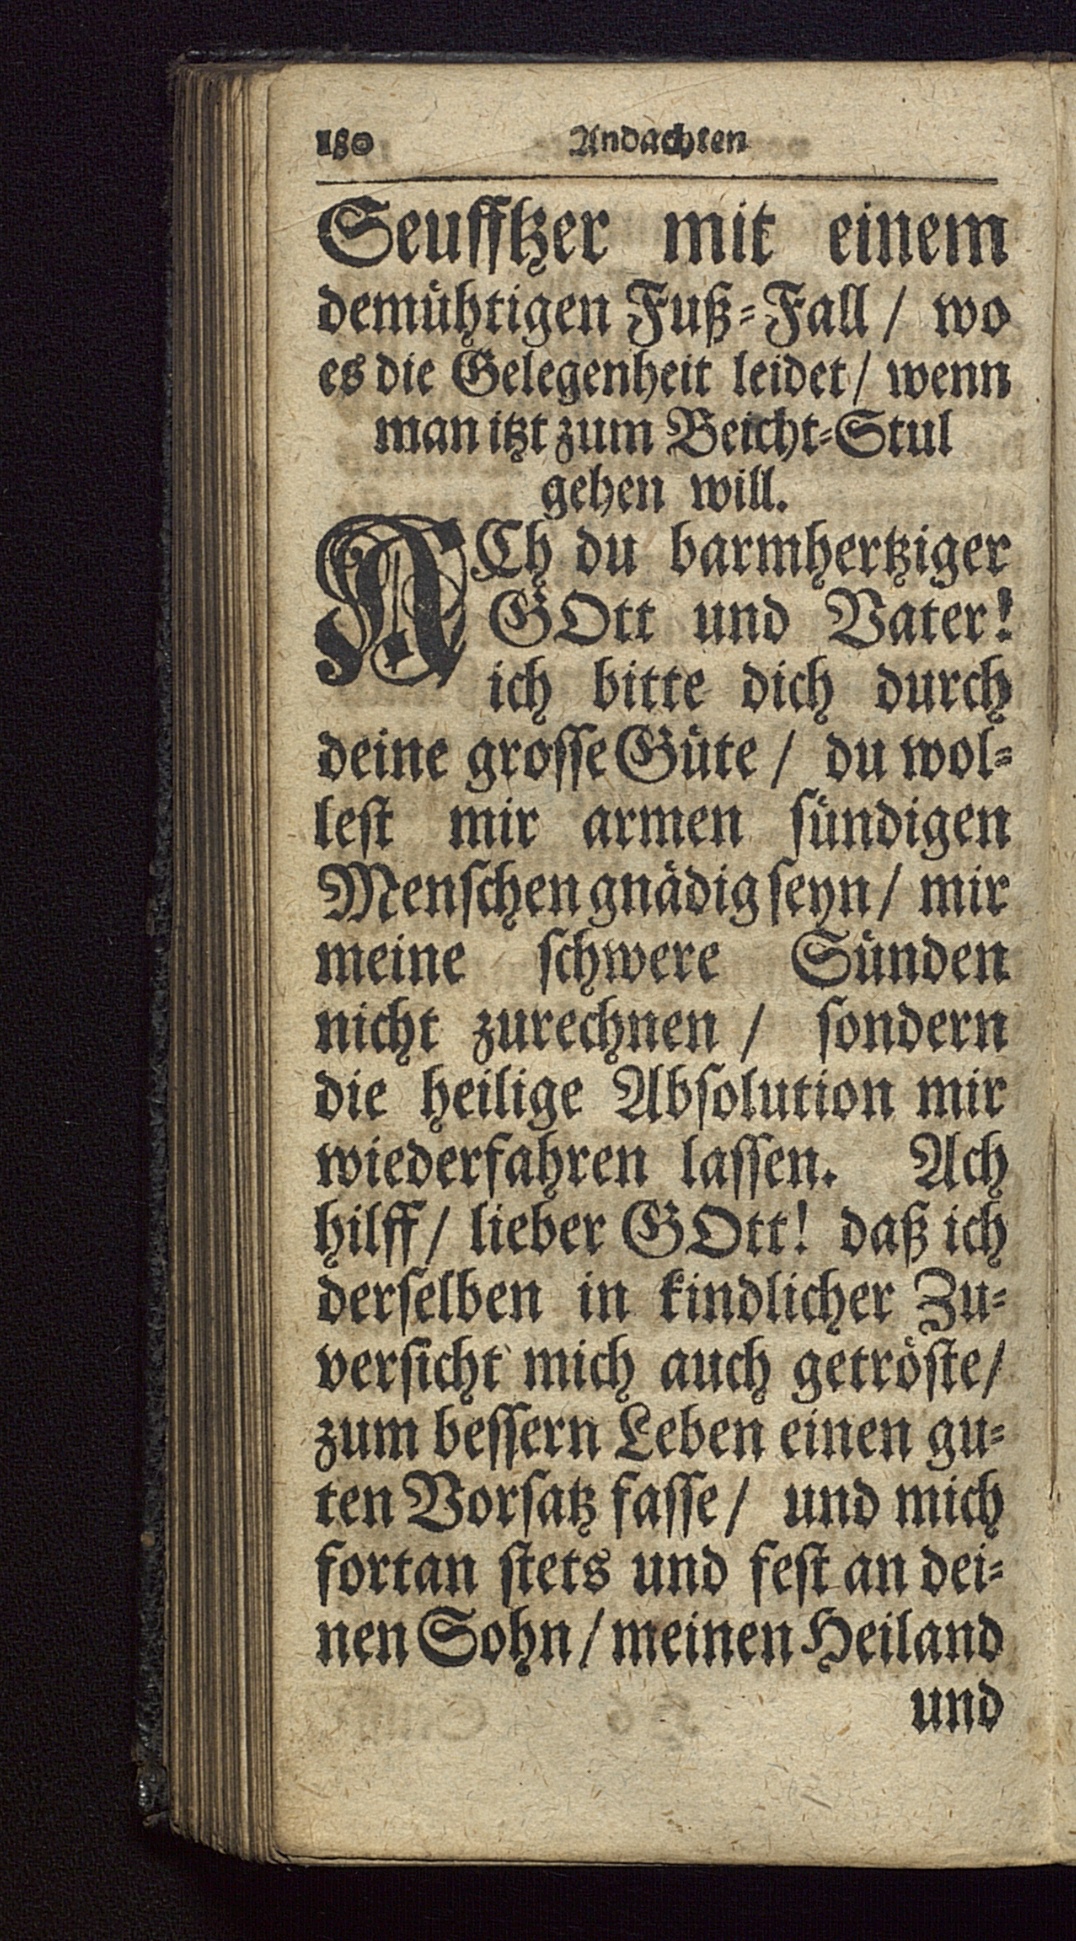 180 Andachten
Seufftzer mit einem
demühtigen Fuß-Fall / wo
es die Gelegenheit leidet / wenn
man itzt zum Beicht-Stul
gehen will.
ACh du barmhertziger
GOtt und Vater!
ich bitte dich durch
deine grosse Güte / du wol-
lest mir armen sündigen
Menschen gnädig seyn / mir
meine schwere Sünden
nicht zurechnen / sondern
die heilige Absolution mir
wiederfahren lassen. Ach
hilff / lieber GOtt! daß ich
derselben in kindlicher Zu-
versicht mich auch getröste /
zum bessern Leben einen gu-
ten Vorsatz fasse / und mich
fortan stets und fest an dei-
nen Sohn / meinen Heiland
und